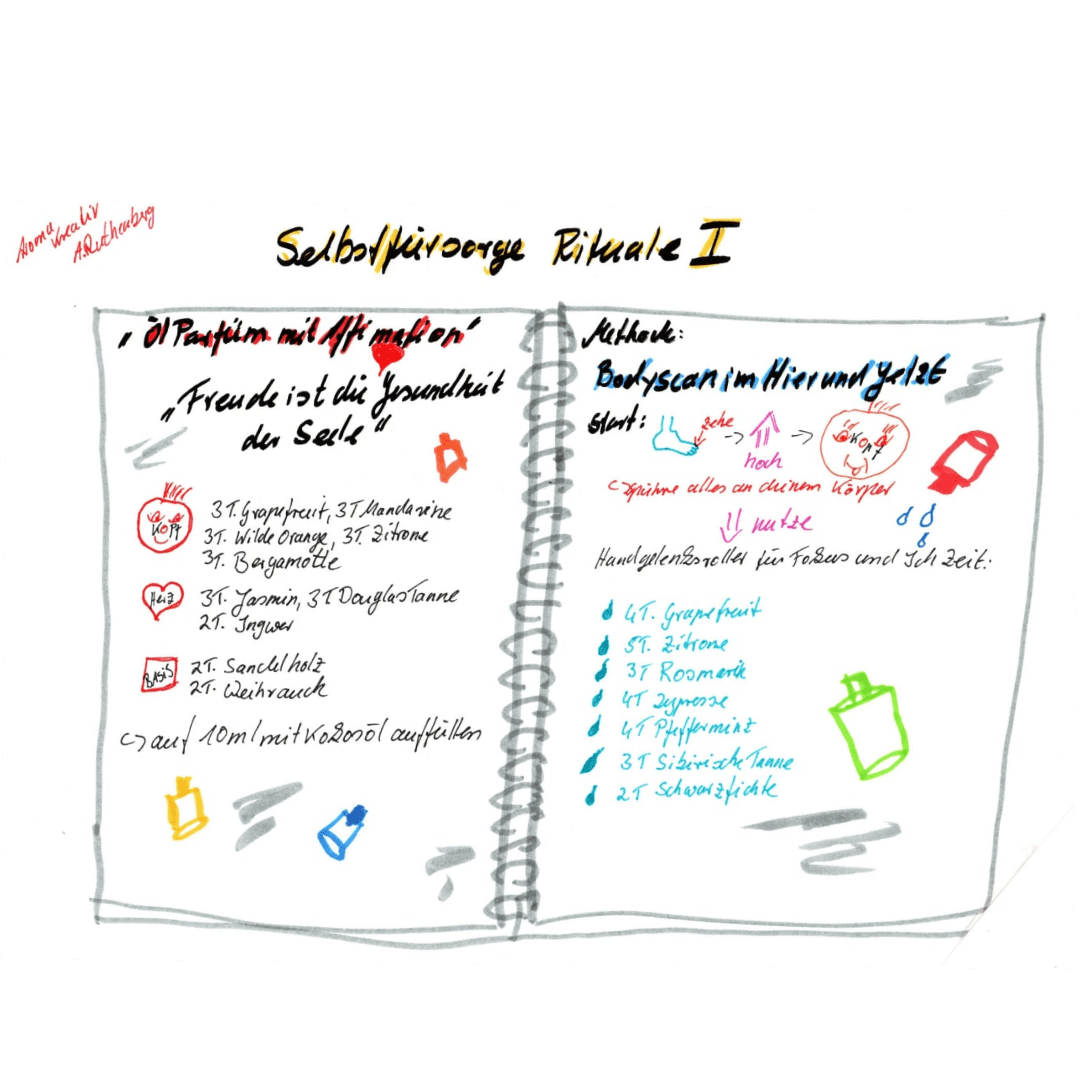 Aroma
Kreativ
A.Ruthenberg
Selbstfürsorge Rituale I
„Öl Parfüm mit Affimation"
„Freude ist die Gesundheit
der Seele"
Kopf
3T. Grapefruit, 3T Mandarine
3T. Wilde Orange, 3T. Zitrone
3T. Bergamotte
Herz
3T. Jasmin, 3T Douglas Tanne
2T. Ingwer
BASIS
2T. Sandelholz
2T. Weihrauch
auf 10ml mit Kokosöl auffüllen
Methode:
Bodyscan im Hier und Jetzt
Start:
zehe
hoch
Kopf
spühre alles an deinem Körper
nutze
Handgelenksroller für Fokus und Ich Zeit:
4T. Grapefruit
5T. Zitrone
3T Rosmarin
4T Zypresse
4T Pfefferminz
3T Sibirische Tanne
2T Schwarzfichte